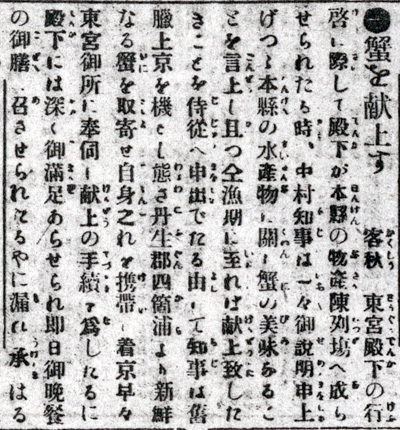 ●蟹を献上す　客秋　東宮殿下の行
啓に際して殿下が本縣の物産陳列塲へ成ら
せられたる時、中村知事は一々御説明申上
げつゝ本縣の水産物に關し蟹の美味なるこ
とを言上し且つ仝漁期に至れば献上致した
きことを侍從へ申出でたる由にて知事は舊
臘上京を機とし態々丹生郡四箇浦より新鮮
なる蟹を取寄せ自身之れを携帶し着京早々
東宮御所に奉伺し献上の手續を爲したるに
殿下には深く御滿足あらせられ即日御晩餐
の御膳に召させられたるやに漏れ承はる